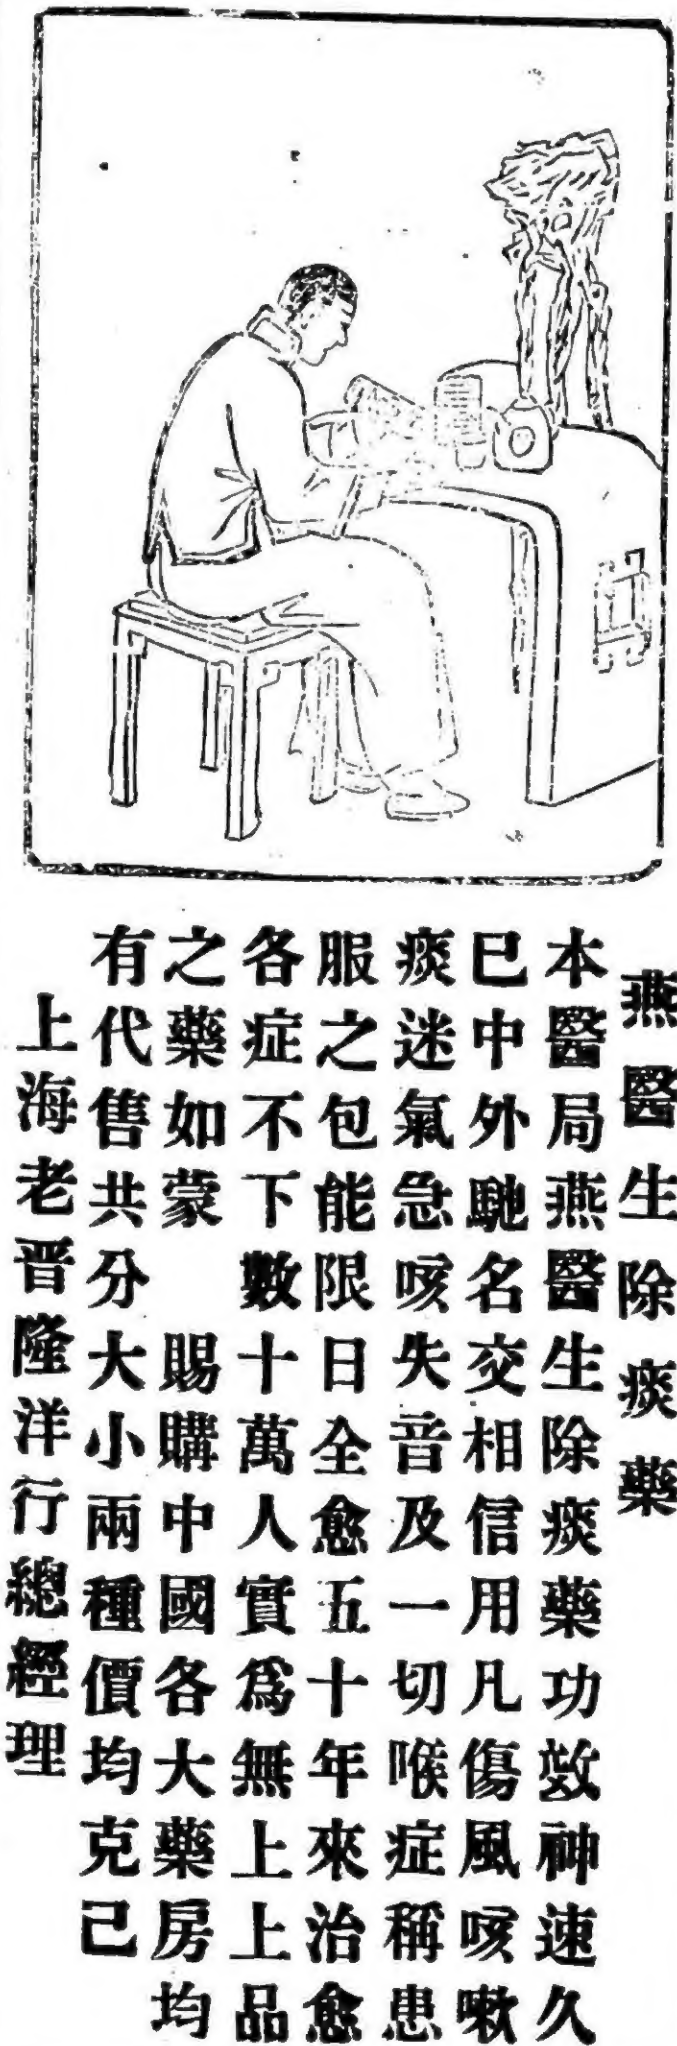 燕醫生除痰藥
本醫局燕醫生除痰藥功效神速久
已中外馳名交相信用凡傷風咳嗽
痰迷氣急咳失音及一切喉症稱患
服之包能限日全愈五十年來治愈
各症不下數十萬人實爲無上上品
之藥如蒙　賜購中國各大藥房均
有代售共分大小兩種價均克己
上海老晋隆洋行總經理